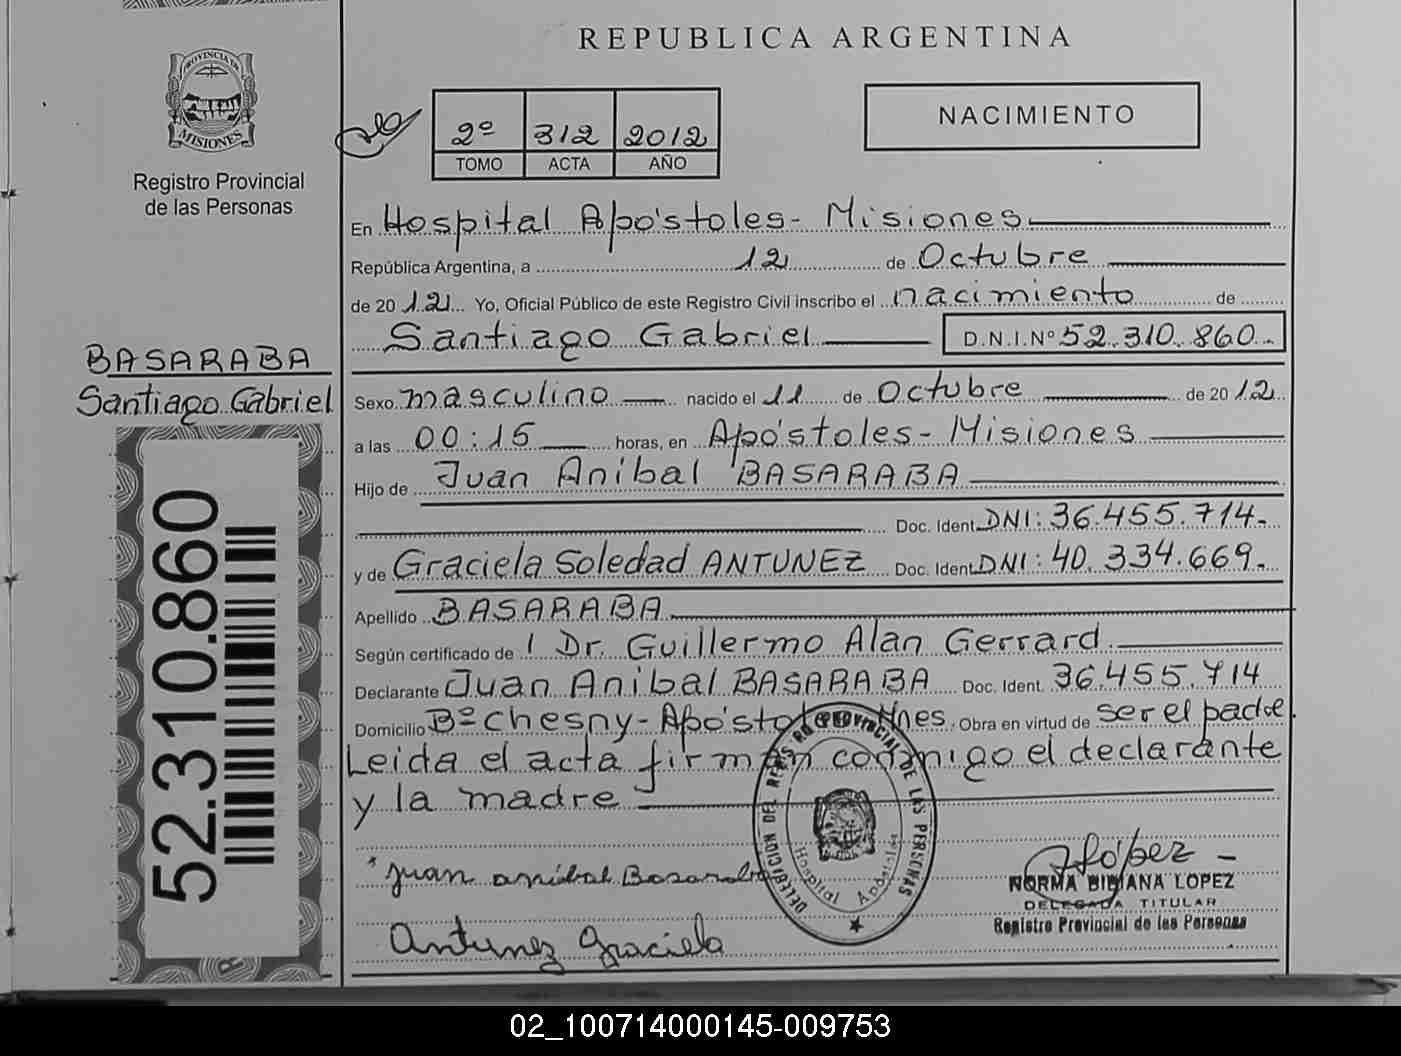 REPUBLICA ARGENTINA
PROVINCIA DE
MISIONES
Registro Provincial
de las Personas
2º 312 2012
TOMO ACTA AÑO
NACIMIENTO
En Hospital Apóstoles - Misiones
República Argentina, a 12 de Octubre
de 2012 Yo, Oficial Público de este Registro Civil inscribo el nacimiento de
Santiago Gabriel D.N.I.Nº 52.310.860.-
BASARABA
Santiago Gabriel
Sexo masculino nacido el 11 de Octubre de 2012
a las 00:15 horas, en Apóstoles - Misiones
Hijo de Juan Anibal BASARABA
Doc. Ident. DNI: 36.455.714.-
y de Graciela Soledad ANTUNEZ Doc. Ident. DNI: 40.334.669.-
Apellido BASARABA
Según certificado de Dr. Guillermo Alan Gerrard
Declarante Juan Anibal BASARABA Doc. Ident. 36.455.714
Domicilio Bº Chesny - Apóstoles Mnes. Obra en virtud de ser el padre.
Leida el acta firman conmigo el declarante
y la madre
52.310.860
DELEGACION DEL REGISTRO PROVINCIAL DE LAS PERSONAS
Hospital Apóstoles
Juan anibal Basaraba
Antunez Graciela
López
NORMA BIBIANA LOPEZ
DELEGADA TITULAR
Registro Provincial de las Personas
02_100714000145-009753